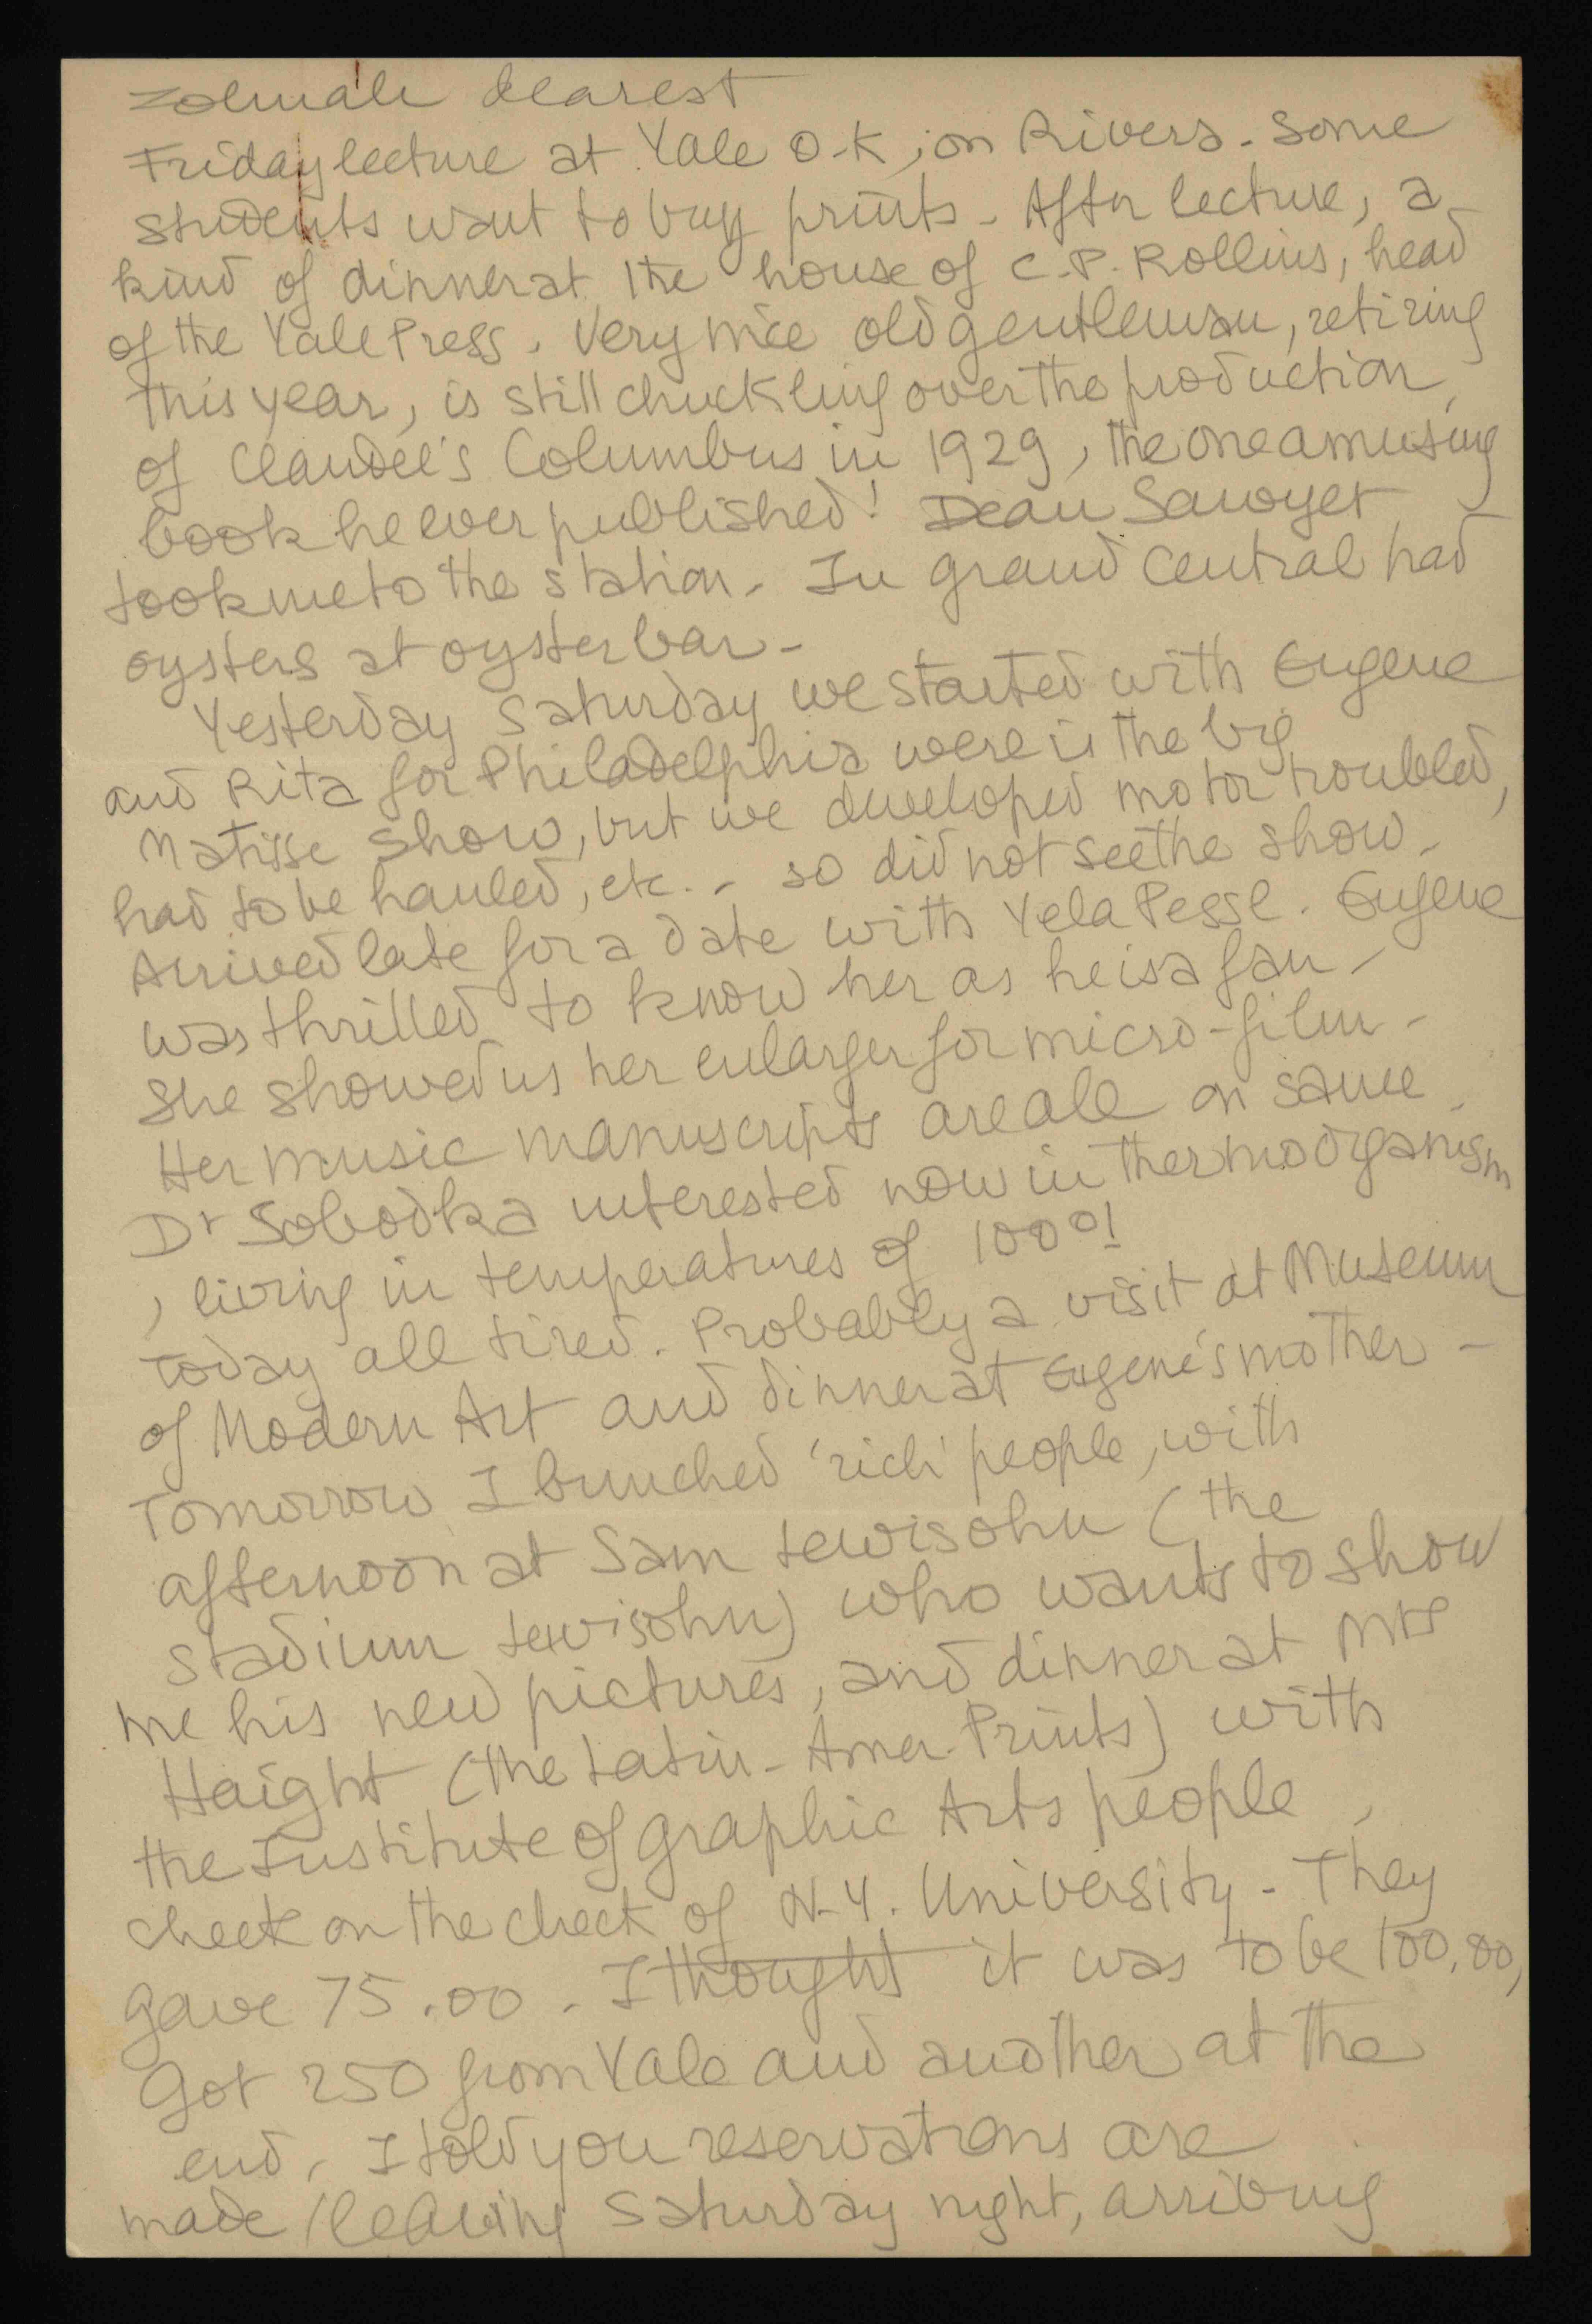 Zohmah dearest
Friday lecture at Yale O-K, on Rivera - Some
students want to buy prints - After lecture, a
kind of dinner at the house of C.P. Rollins, head
of the Yale Press. Very nice old gentleman, retiring
this year, is still chuckling over the production
of Claudel's Columbus in 1929, the one amusing
book he ever published! Dean Sawyer
took me to the station. In grand Central had
oysters at oyster bar -
Yesterday Saturday we started with Eugene
and Rita for Philadelphia were is the big
Matisse show, but we developed motor troubled,
had to be hauled, etc. - so did not see the show -
Arrived late for a date with Yela Pessl. Eugene
was thrilled to know her as he is a fan -
She showed us her enlarger for micro-film -
Her music manuscripts are all on same.
Dr Sobodka interested now in thermoorganism
, living in temperatures of 100°!
Today all tired. Probably a visit at Museum
of Modern Art and dinner at Eugene's mother -
Tomorrow I bunched 'rich' people, with
afternoon at Sam Lewisohn (the
stadium Lewisohn) who wants to show
me his new pictures, and dinner at Mrs
Haight (the Latin-Amer. Prints) with
the Institute of graphic Arts people,
check on the check of N-Y. University - They
gave 75.00 - I thought it was to be 100.00,
Got 250 from Yale and another at the
end, I told you reservations are
made leaving Saturday night, arriving